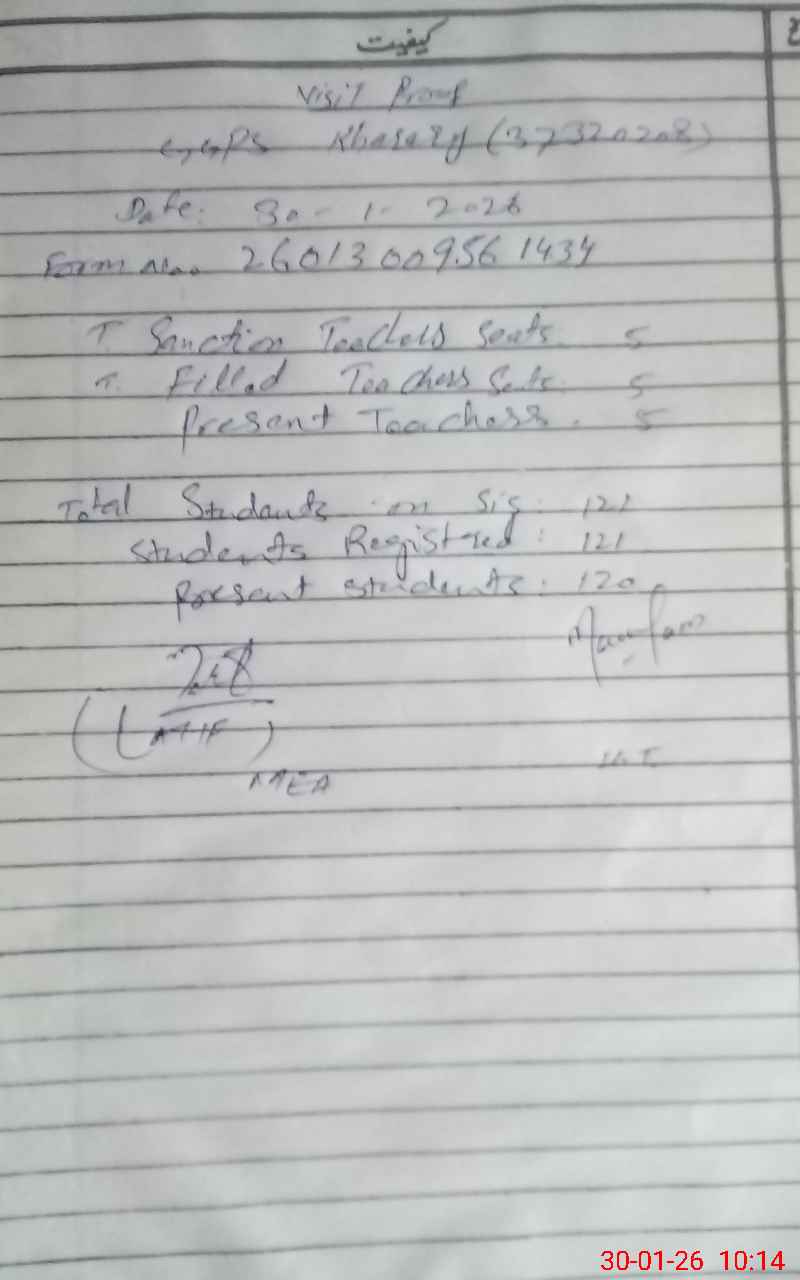 کیفیت
Visit Proof
GGPS Khasary (37320208)
Date: 30-1-2026
Form No. 26013009561434
T. Sanction Teachers Seats. 5
T. Filled Teachers Seats. 5
Present Teachers. 5
Total Students on Sis: 121
Students Registered: 121
Present students: 120
(ATIF)
MEA
30-01-26 10:14